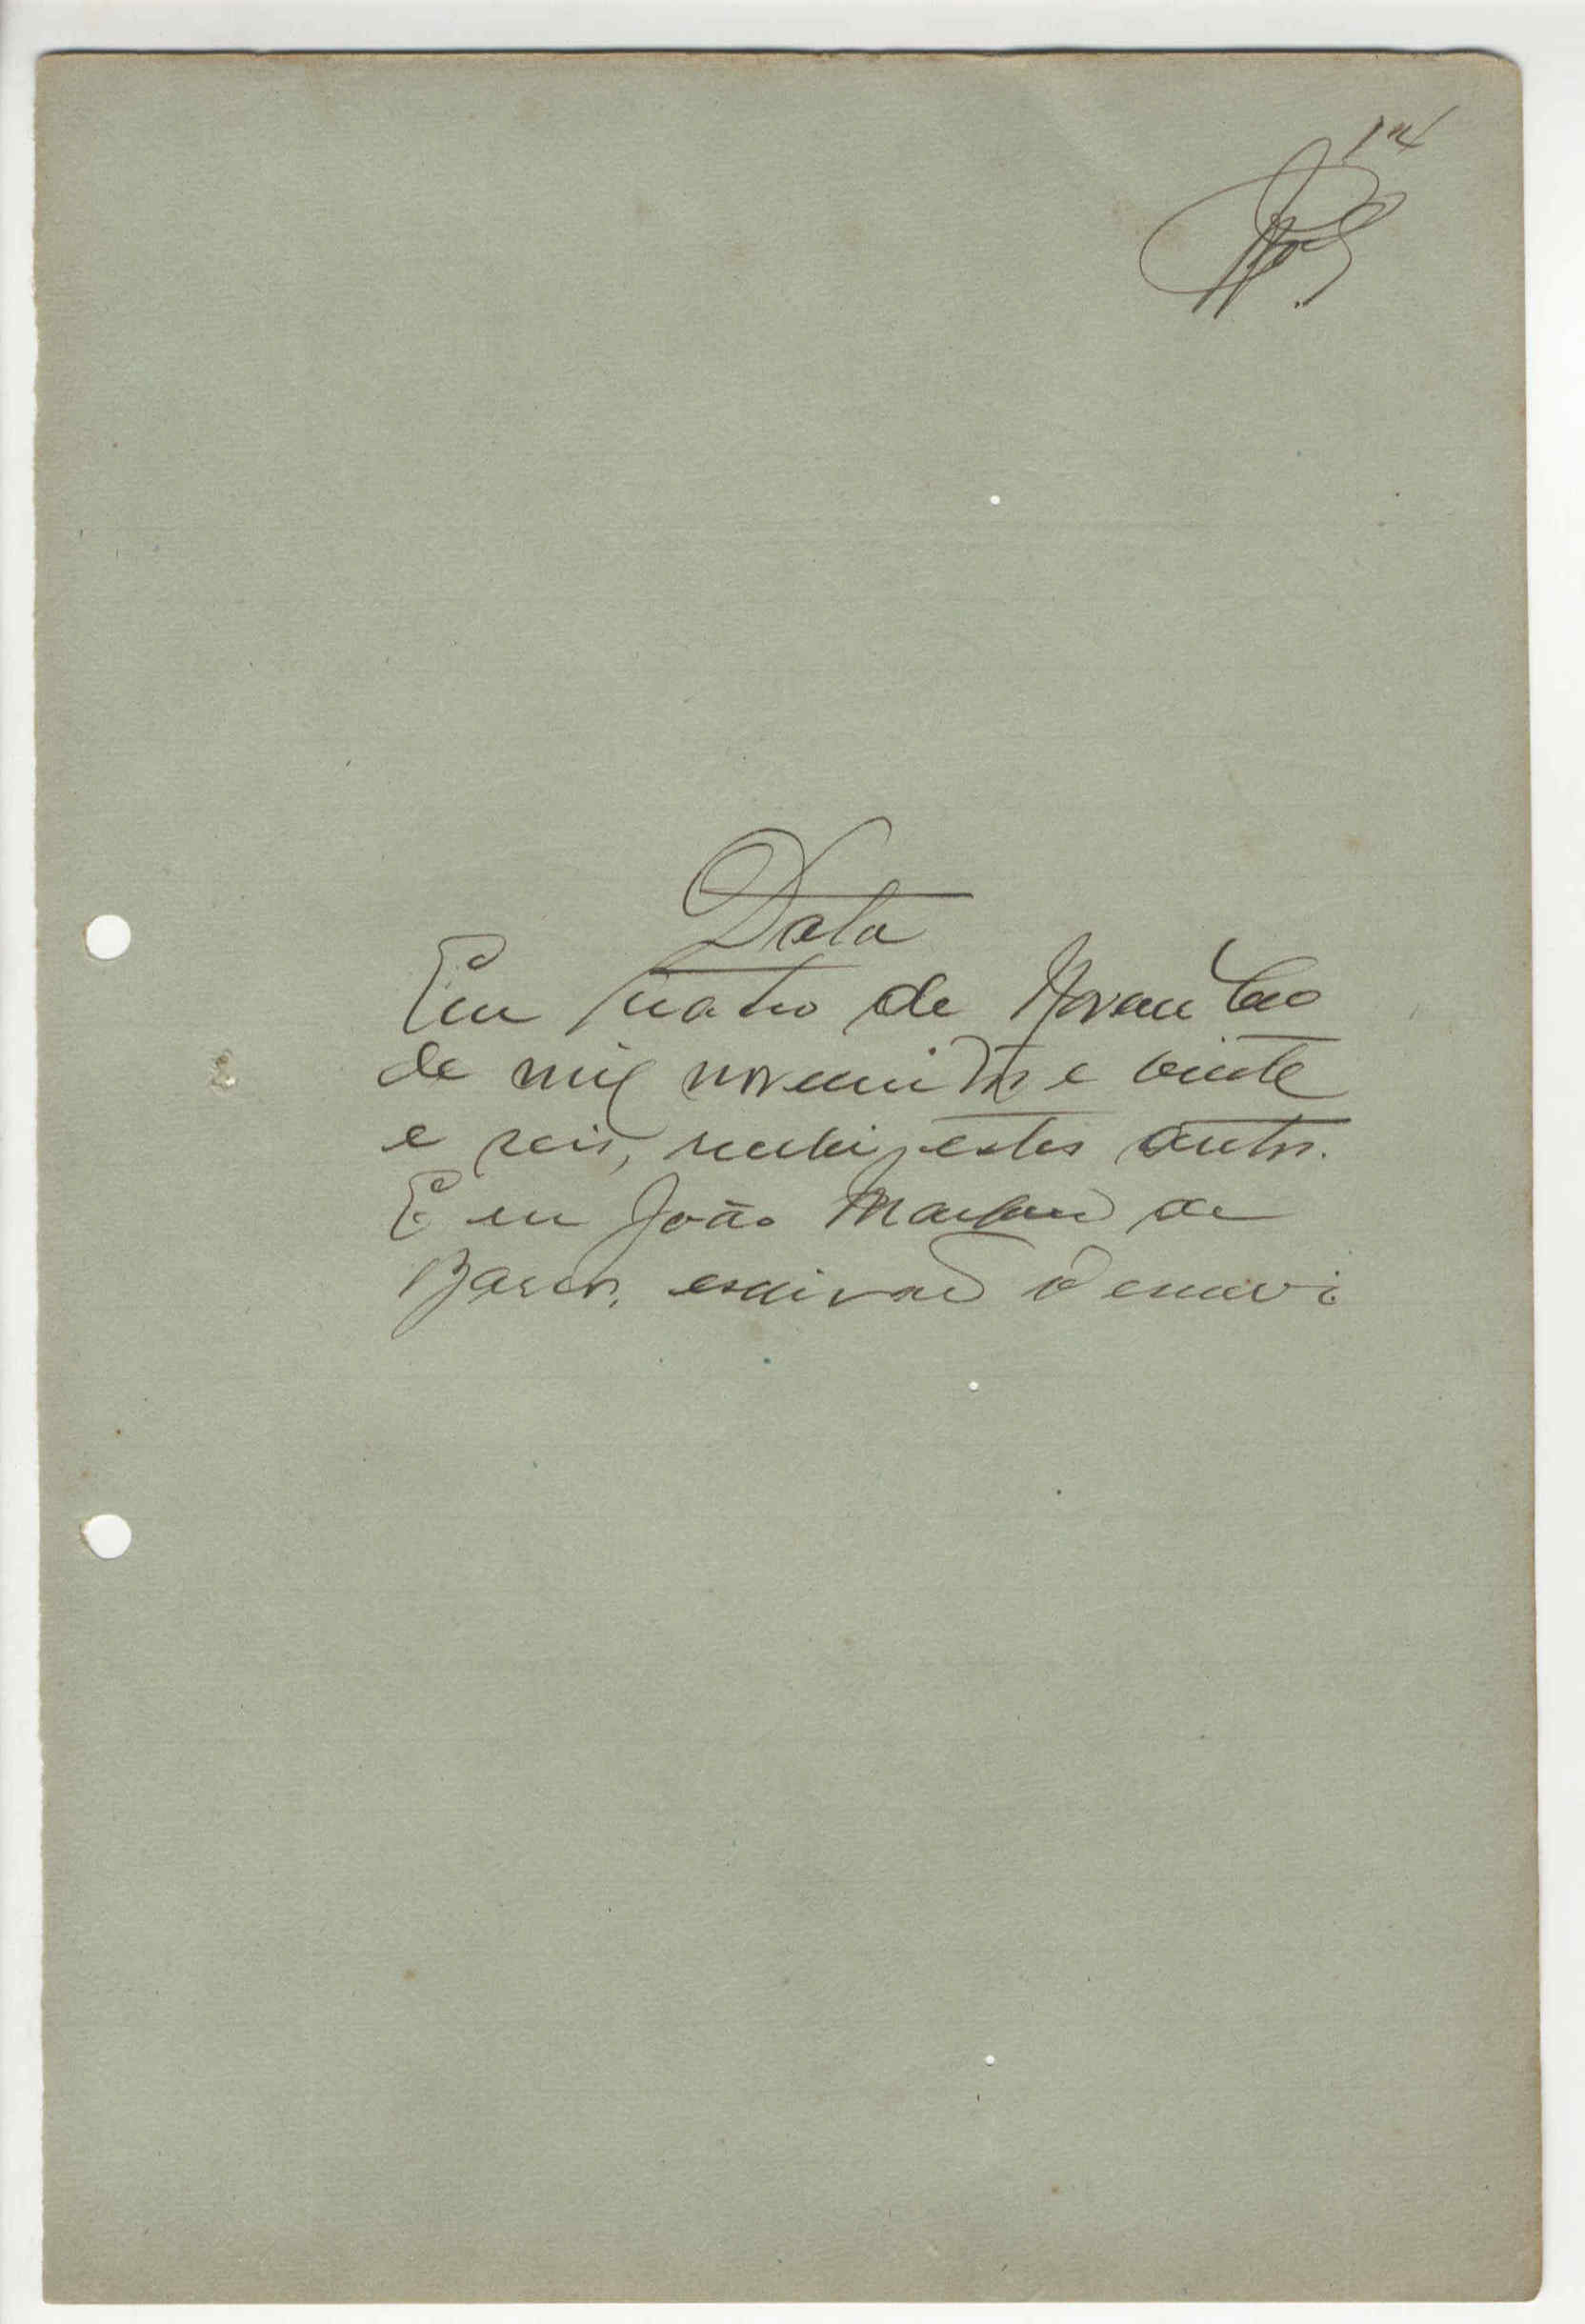 14
Data
Em quatro de Novembro
de mil novecentos e vinte
e seis, recebi estes autos.
E eu João Machado de
Barros, escrivão o escrevi